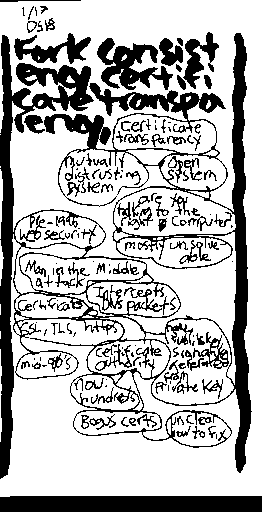 1/17
DS18
Fork consist
ency, certifi
cate transpa
rency,
Certificate
transparency
mutually
distrusting
system
open
system
are you
talking to the
right computer?
Pre-1995
web security
mostly unsolve
able
Man in the Middle
attack
Intercepts
DNS packets
Certificates
SSL, TLS, https
Certificate
authority
Public key
signature
from
Private key
mid-90's
now:
hundreds
Bogus certs
unclear
how to fix